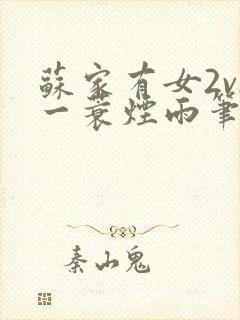 蘇家有女2v
一蓑煙雨筆
秦山鬼